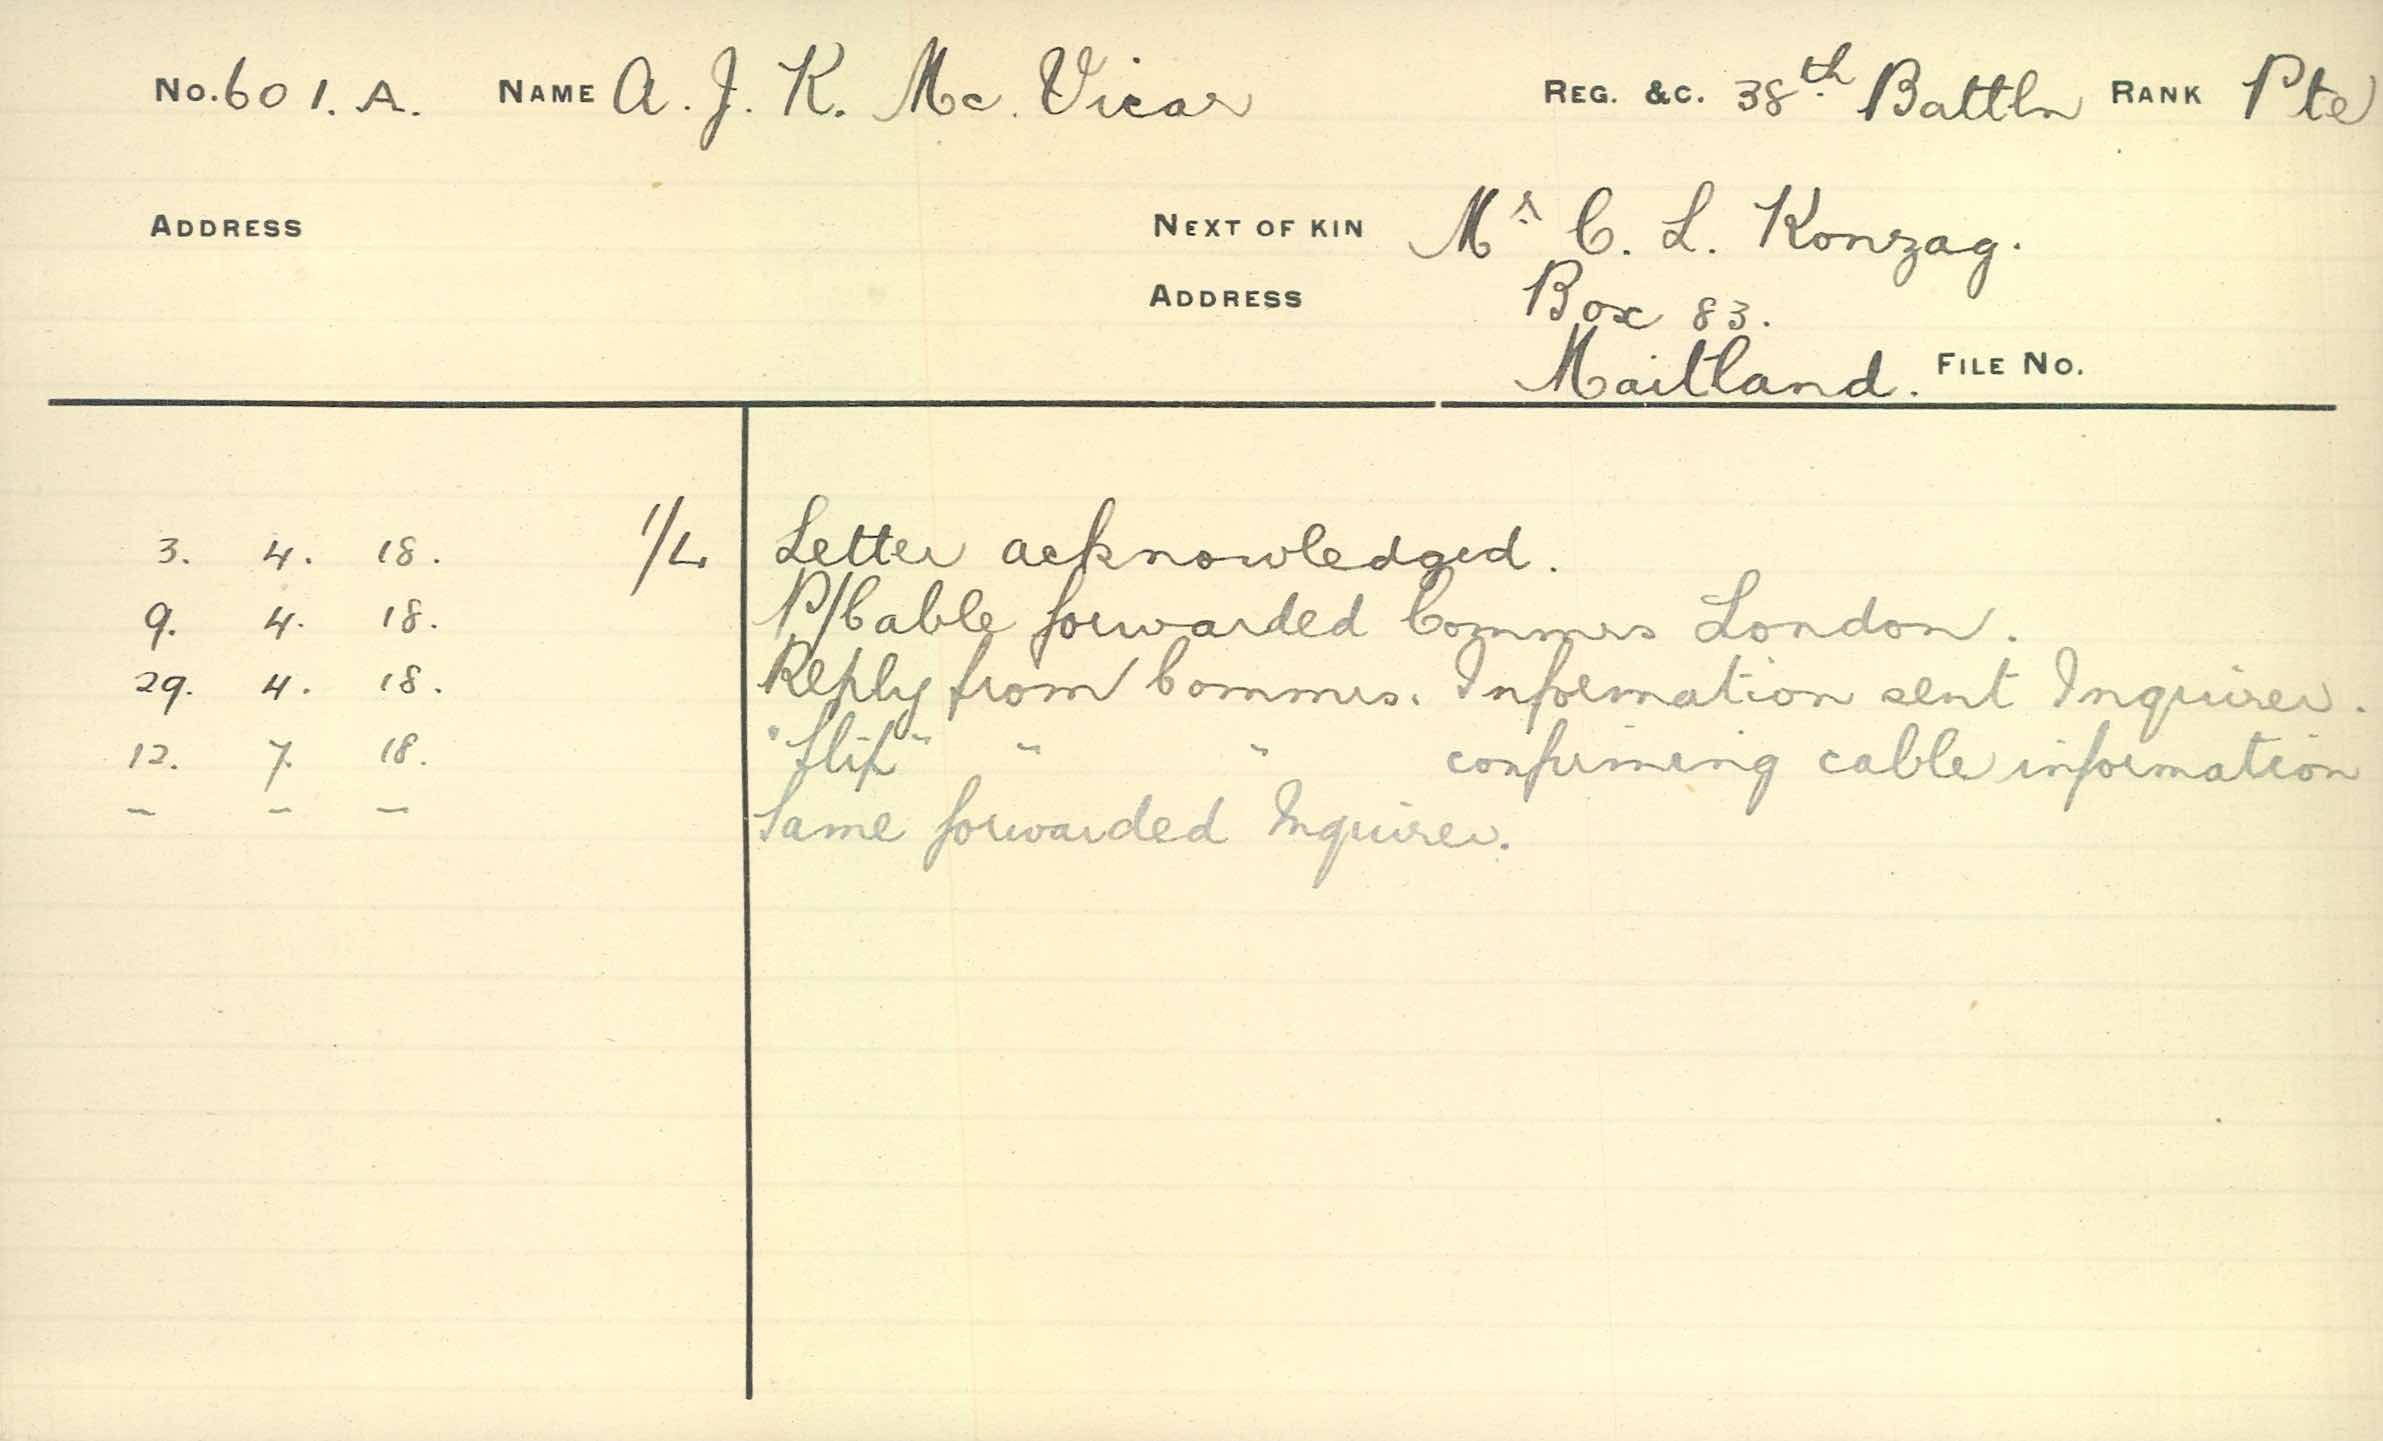 No. 601. A. NAME A. J. K. Mc. Vicar REG. &C. 38th Battln RANK Pte
ADDRESS NEXT OF KIN Mr C. L. Konzag.
ADDRESS Box 83.
Maitland. FILE NO.
3. 4. 18. 1/L. Letter acknowledged.
9. 4. 18. P/Cable forwarded Commrs London.
29. 4. 18. Reply from Commrs. Information sent Inquirer.
12. 7. 18. "Slip" " " confirming cable information
- - - Same forwarded Inquirer.